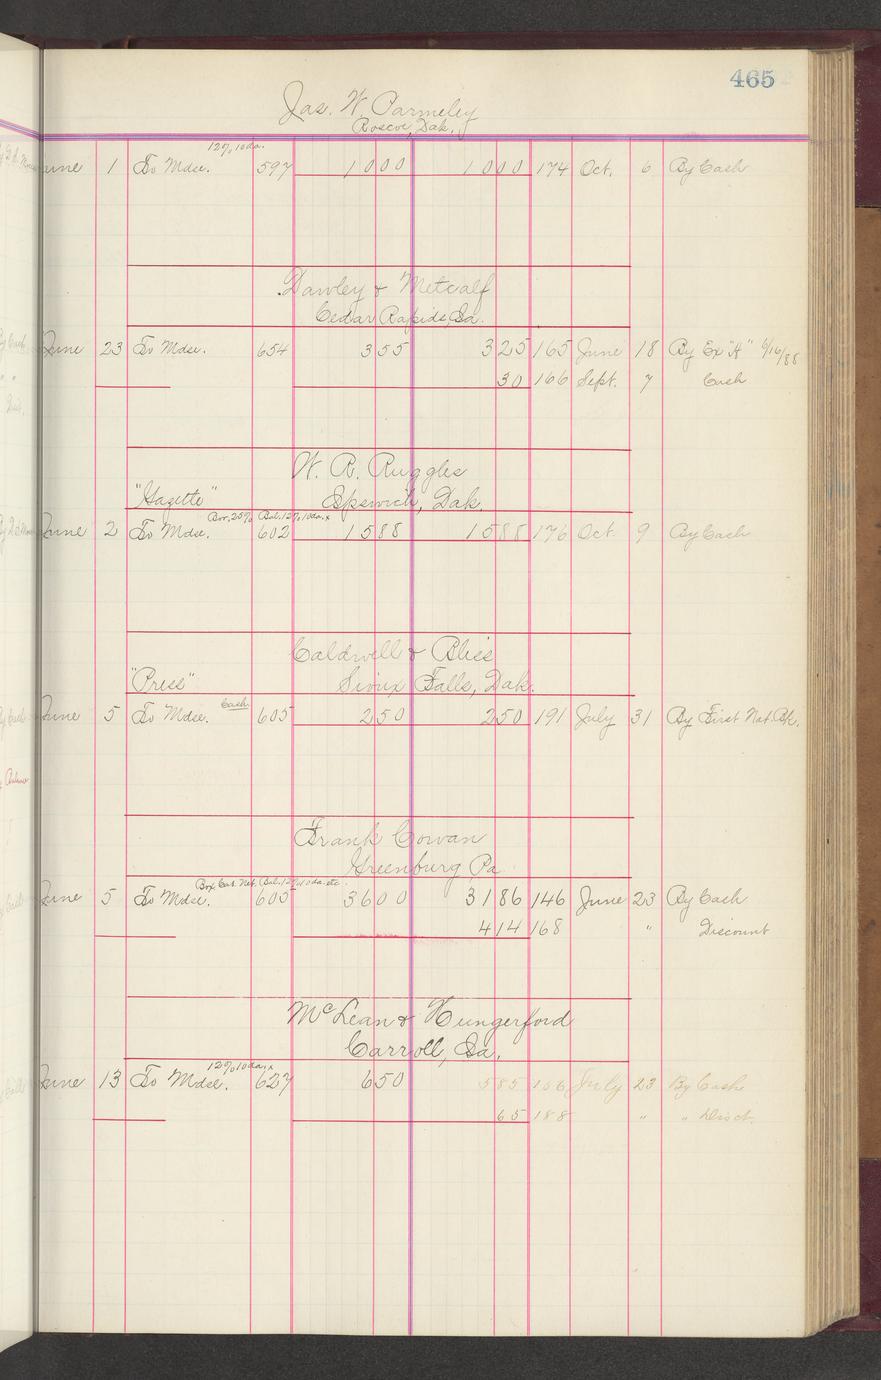 465
Jas. W. Parmeley
Roscoe, Dak.
12% 10 da.
June 1 To Mdse. 597 1000 1000 174 Oct. 6 By Cash
Dawley & Metcalf
Cedar Rapids, Ia.
June 23 To Mdse. 654 355 325 165 June 18 By Ex "A" 6/16/88
30 166 Sept. 7 Cash
W. R. Ruggles
"Gazette" Ipswich, Dak.
Box, 25% Bal. 12% 10 da. x
June 2 To Mdse. 602 1588 1588 176 Oct 9 By Cash
Caldwell & Bliss
"Press" Sioux Falls, Dak.
Cash
June 5 To Mdse. 605 250 250 191 July 31 By First Nat. Bk.
Frank Cowan
Greenburg Pa
Box Cat. Net. (Bal. 12% 10 da. etc.
June 5 To Mdse. 605 3600 3186 146 June 23 By Cash
414 168 " Discount
McLean & Hungerford
Carroll, Ia.
12% 10 da. x
June 13 To Mdse. 627 650 585 156 July 23 By Cash
65 188 " " Disct.